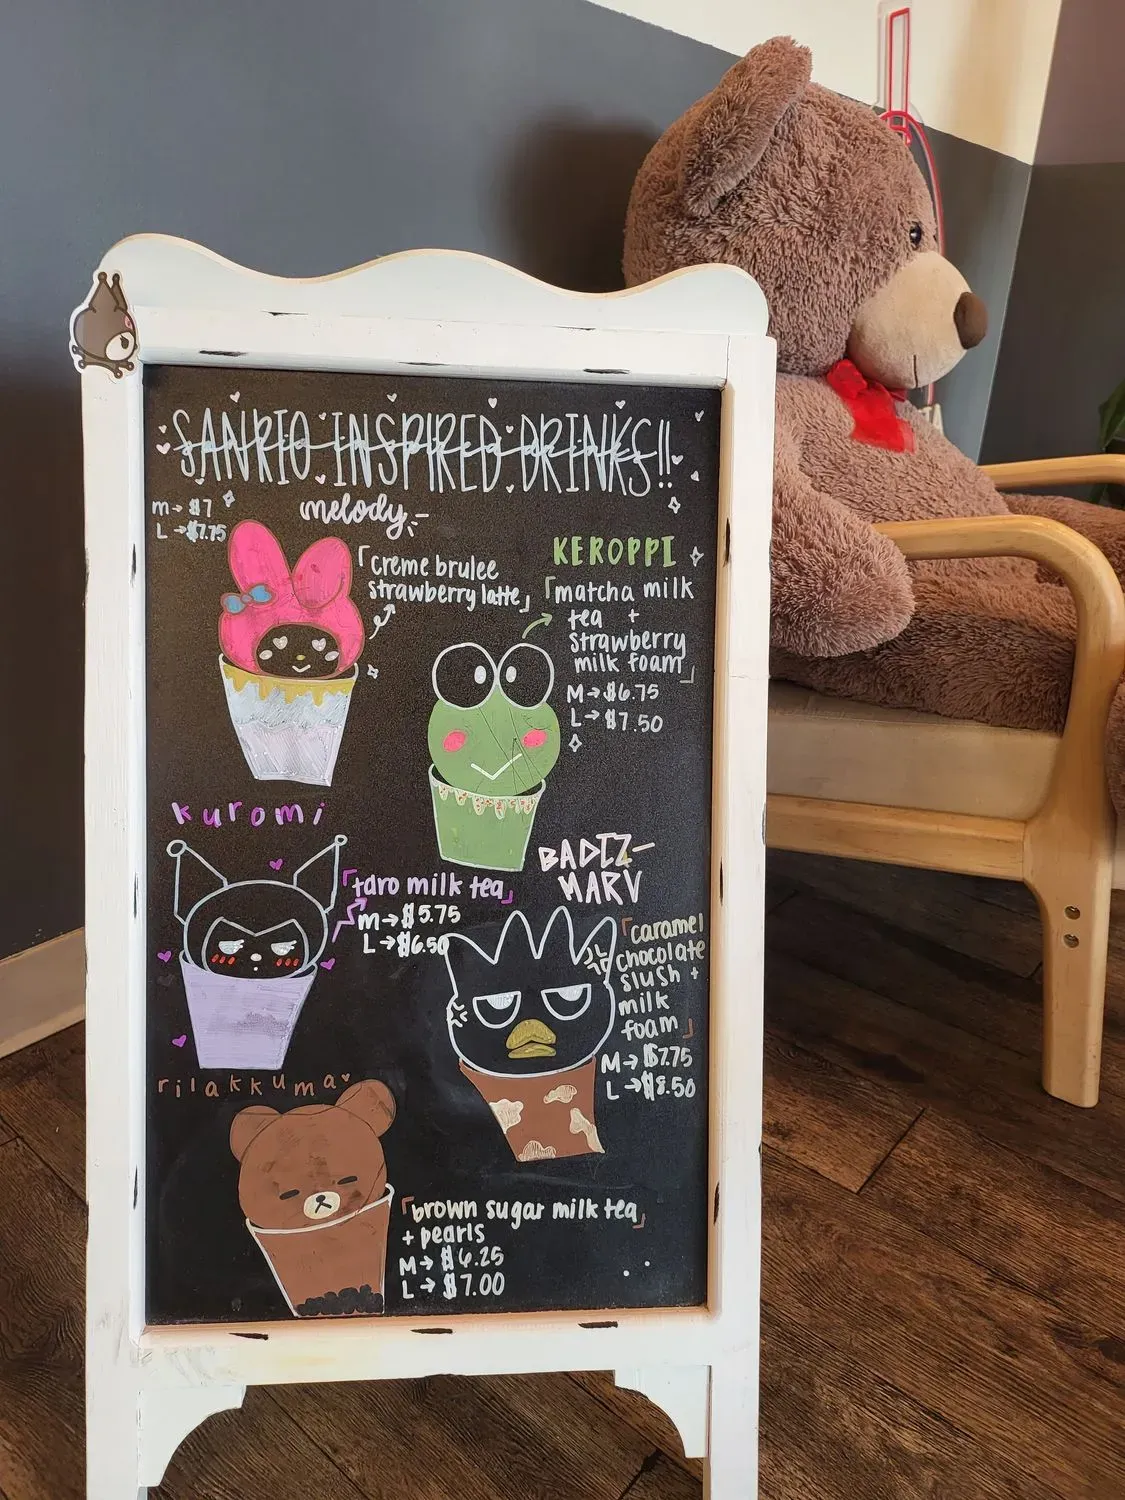 SANRIO INSPIRED DRINKS!!
M → $7
L → $7.75
melody
「creme brulee
strawberry latte」
KEROPPI
「matcha milk
tea +
strawberry
milk foam」
M → $6.75
L → $7.50
kuromi
「taro milk tea」
M → $5.75
L → $6.50
BADTZ-
MARU
「caramel
chocolate
slush +
milk
foam」
M → $7.75
L → $8.50
rilakkuma
「brown sugar milk tea」
+ pearls
M → $6.25
L → $7.00